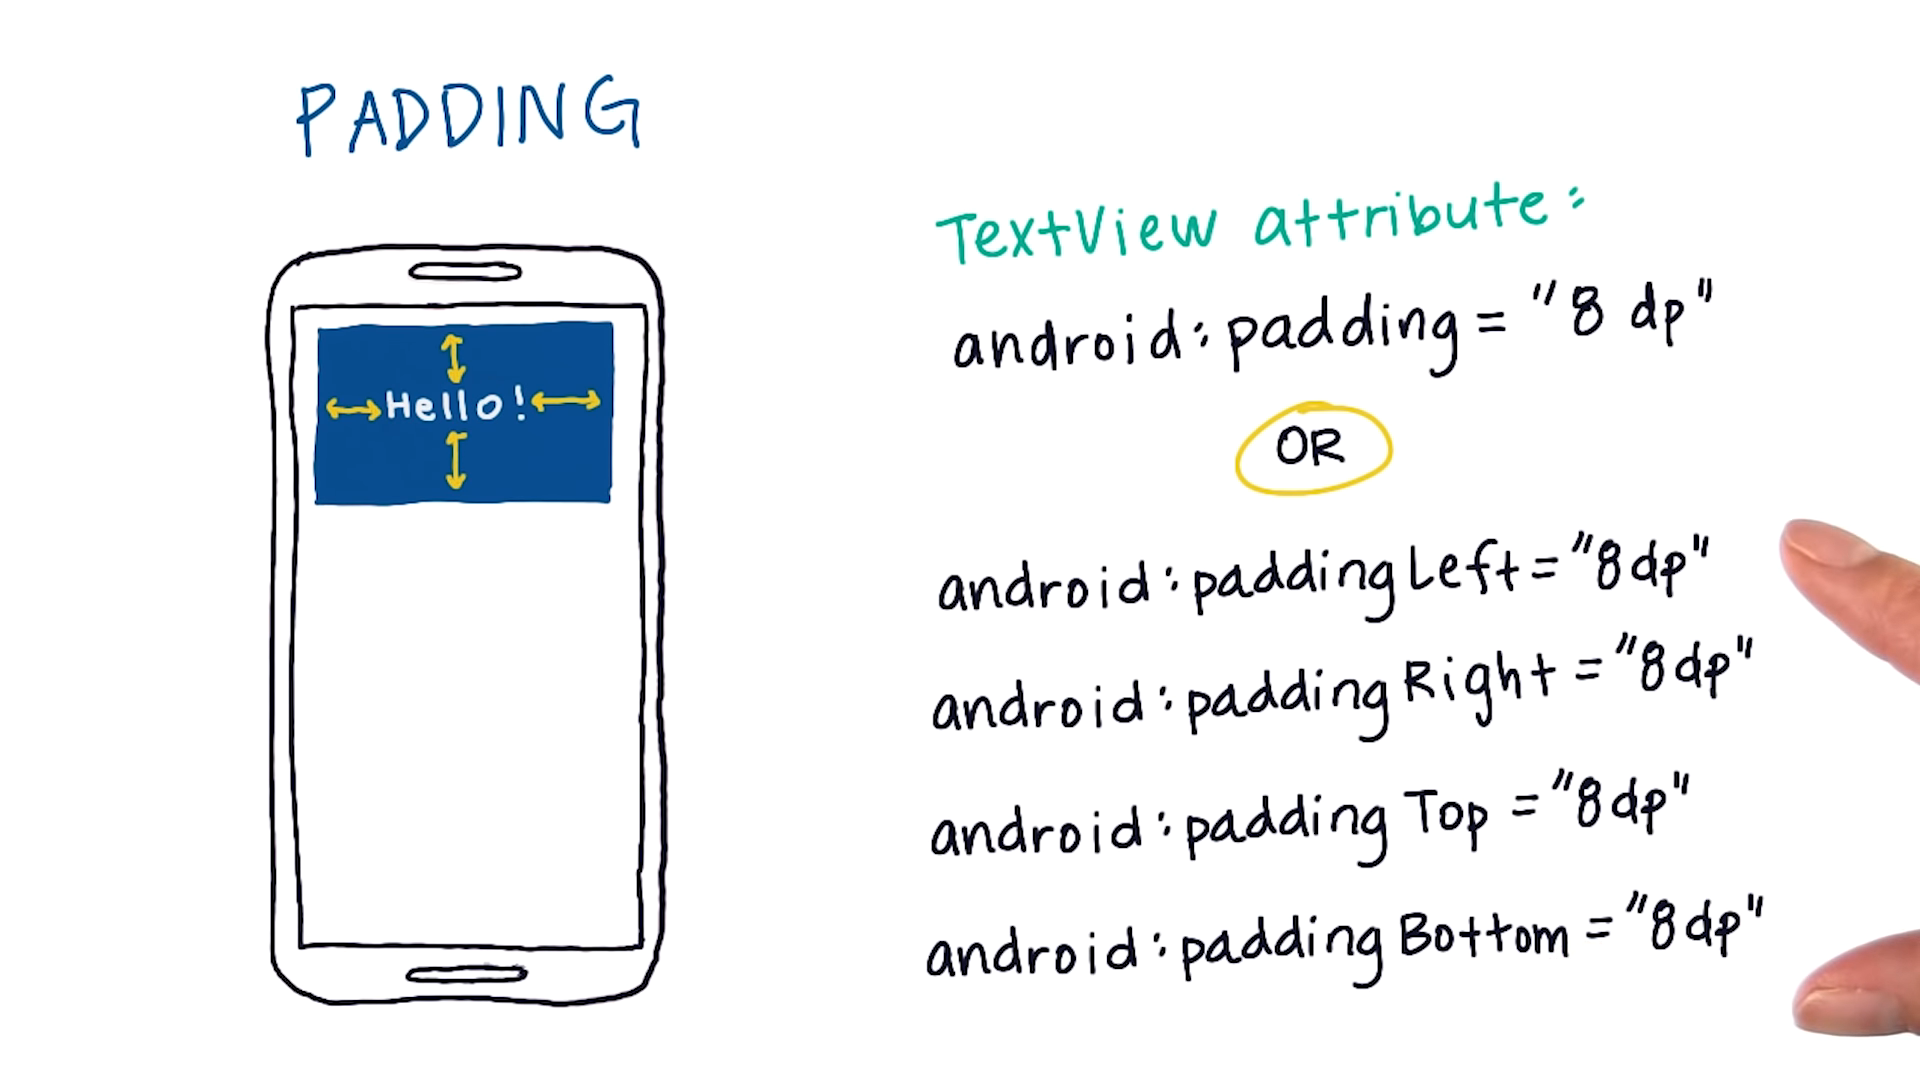 PADDING
Hello!
TextView attribute:
android:padding = "8 dp"
OR
android:paddingLeft = "8dp"
android:paddingRight = "8dp"
android:paddingTop = "8dp"
android:paddingBottom = "8dp"